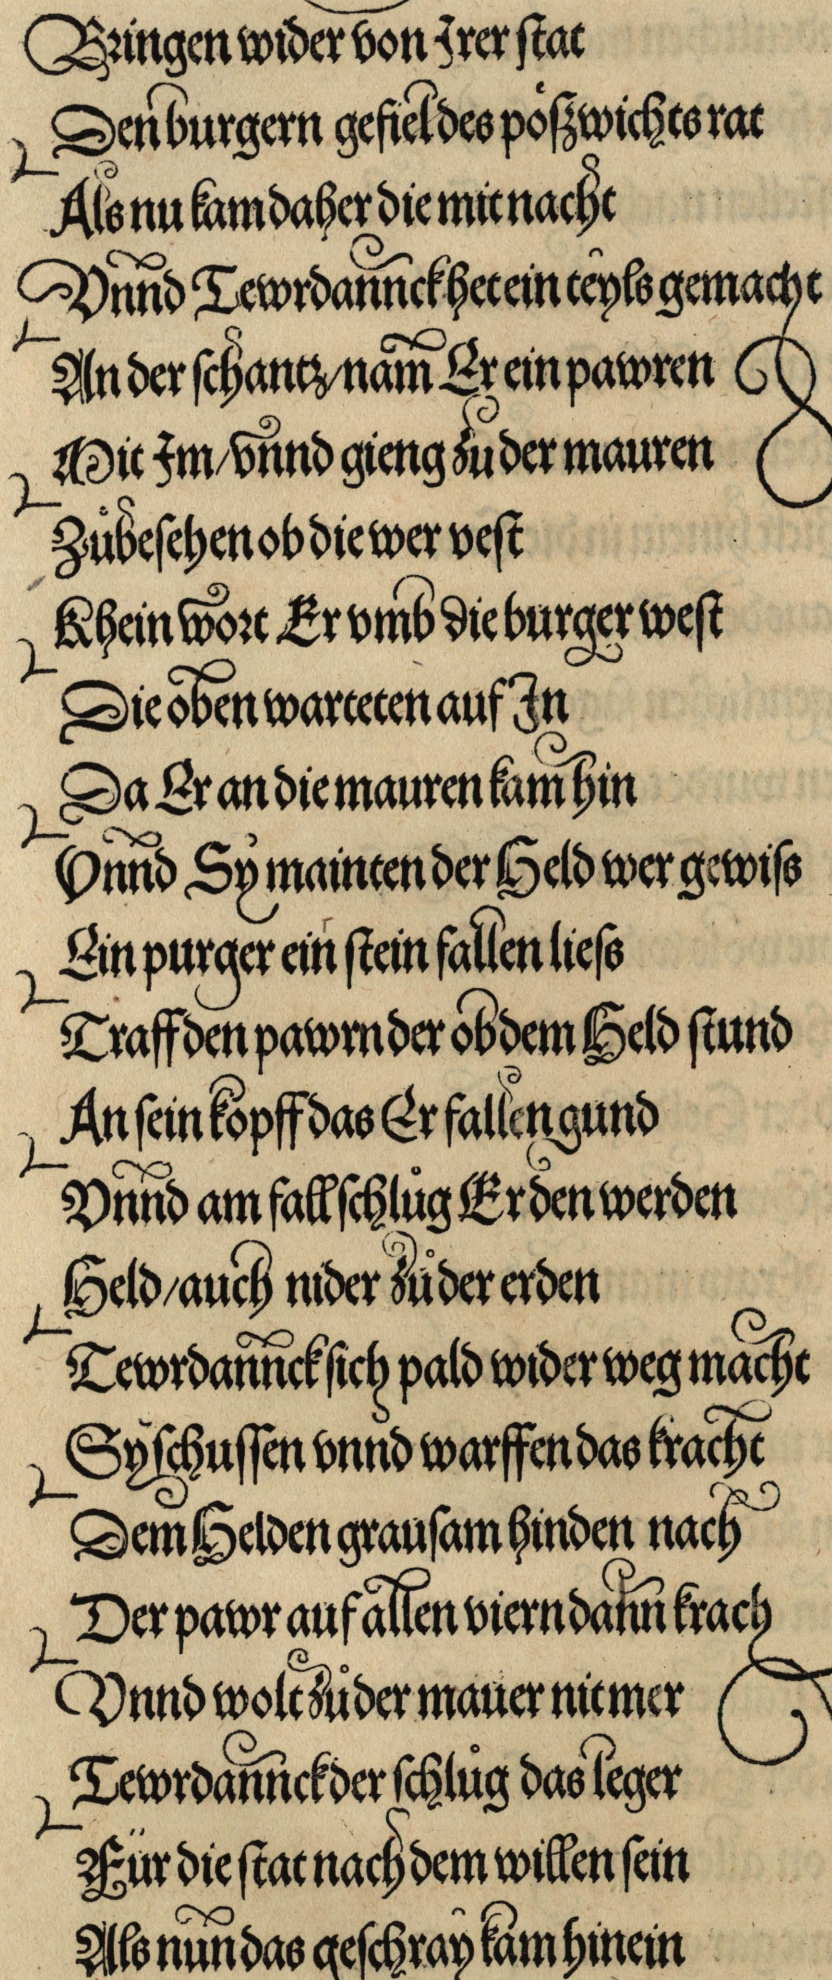 Bringen wider von Irer stat
Den burgern gefiel des pöszwichts rat
Als nu kam daher die mitnacht
Vnnd Tewrdannck het ein teyls gemacht
An der schantz/nam Er ein pawren
Mit Im/vnnd gieng zu der mauren
Zůbesehen ob die wer vest
Khein wort Er vmb die burger west
Die oben warteten auf In
Da Er an die mauren kam hin
Vnnd Sy mainten der Held wer gewiss
Ein purger ein stein fallen liess
Traff den pawrn der ob dem Held stund
An sein kopff das Er fallen gund
Vnnd am fall schlůg Er den werden
Held/auch nider zů der erden
Tewrdannck sich pald wider weg macht
Sy schussen vnnd warffen das kracht
Dem Helden grausam hinden nach
Der pawr auf allen viern dann krach
Vnnd wolt zů der mauer nit mer
Tewrdannck der schlůg das leger
Für die stat nach dem willen sein
Als nun das geschray kam hinein